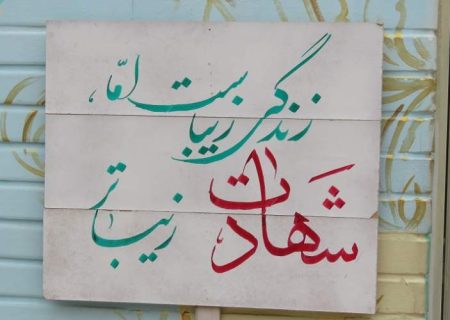 زندگی زیباست امّا،
شهادت زیباتر